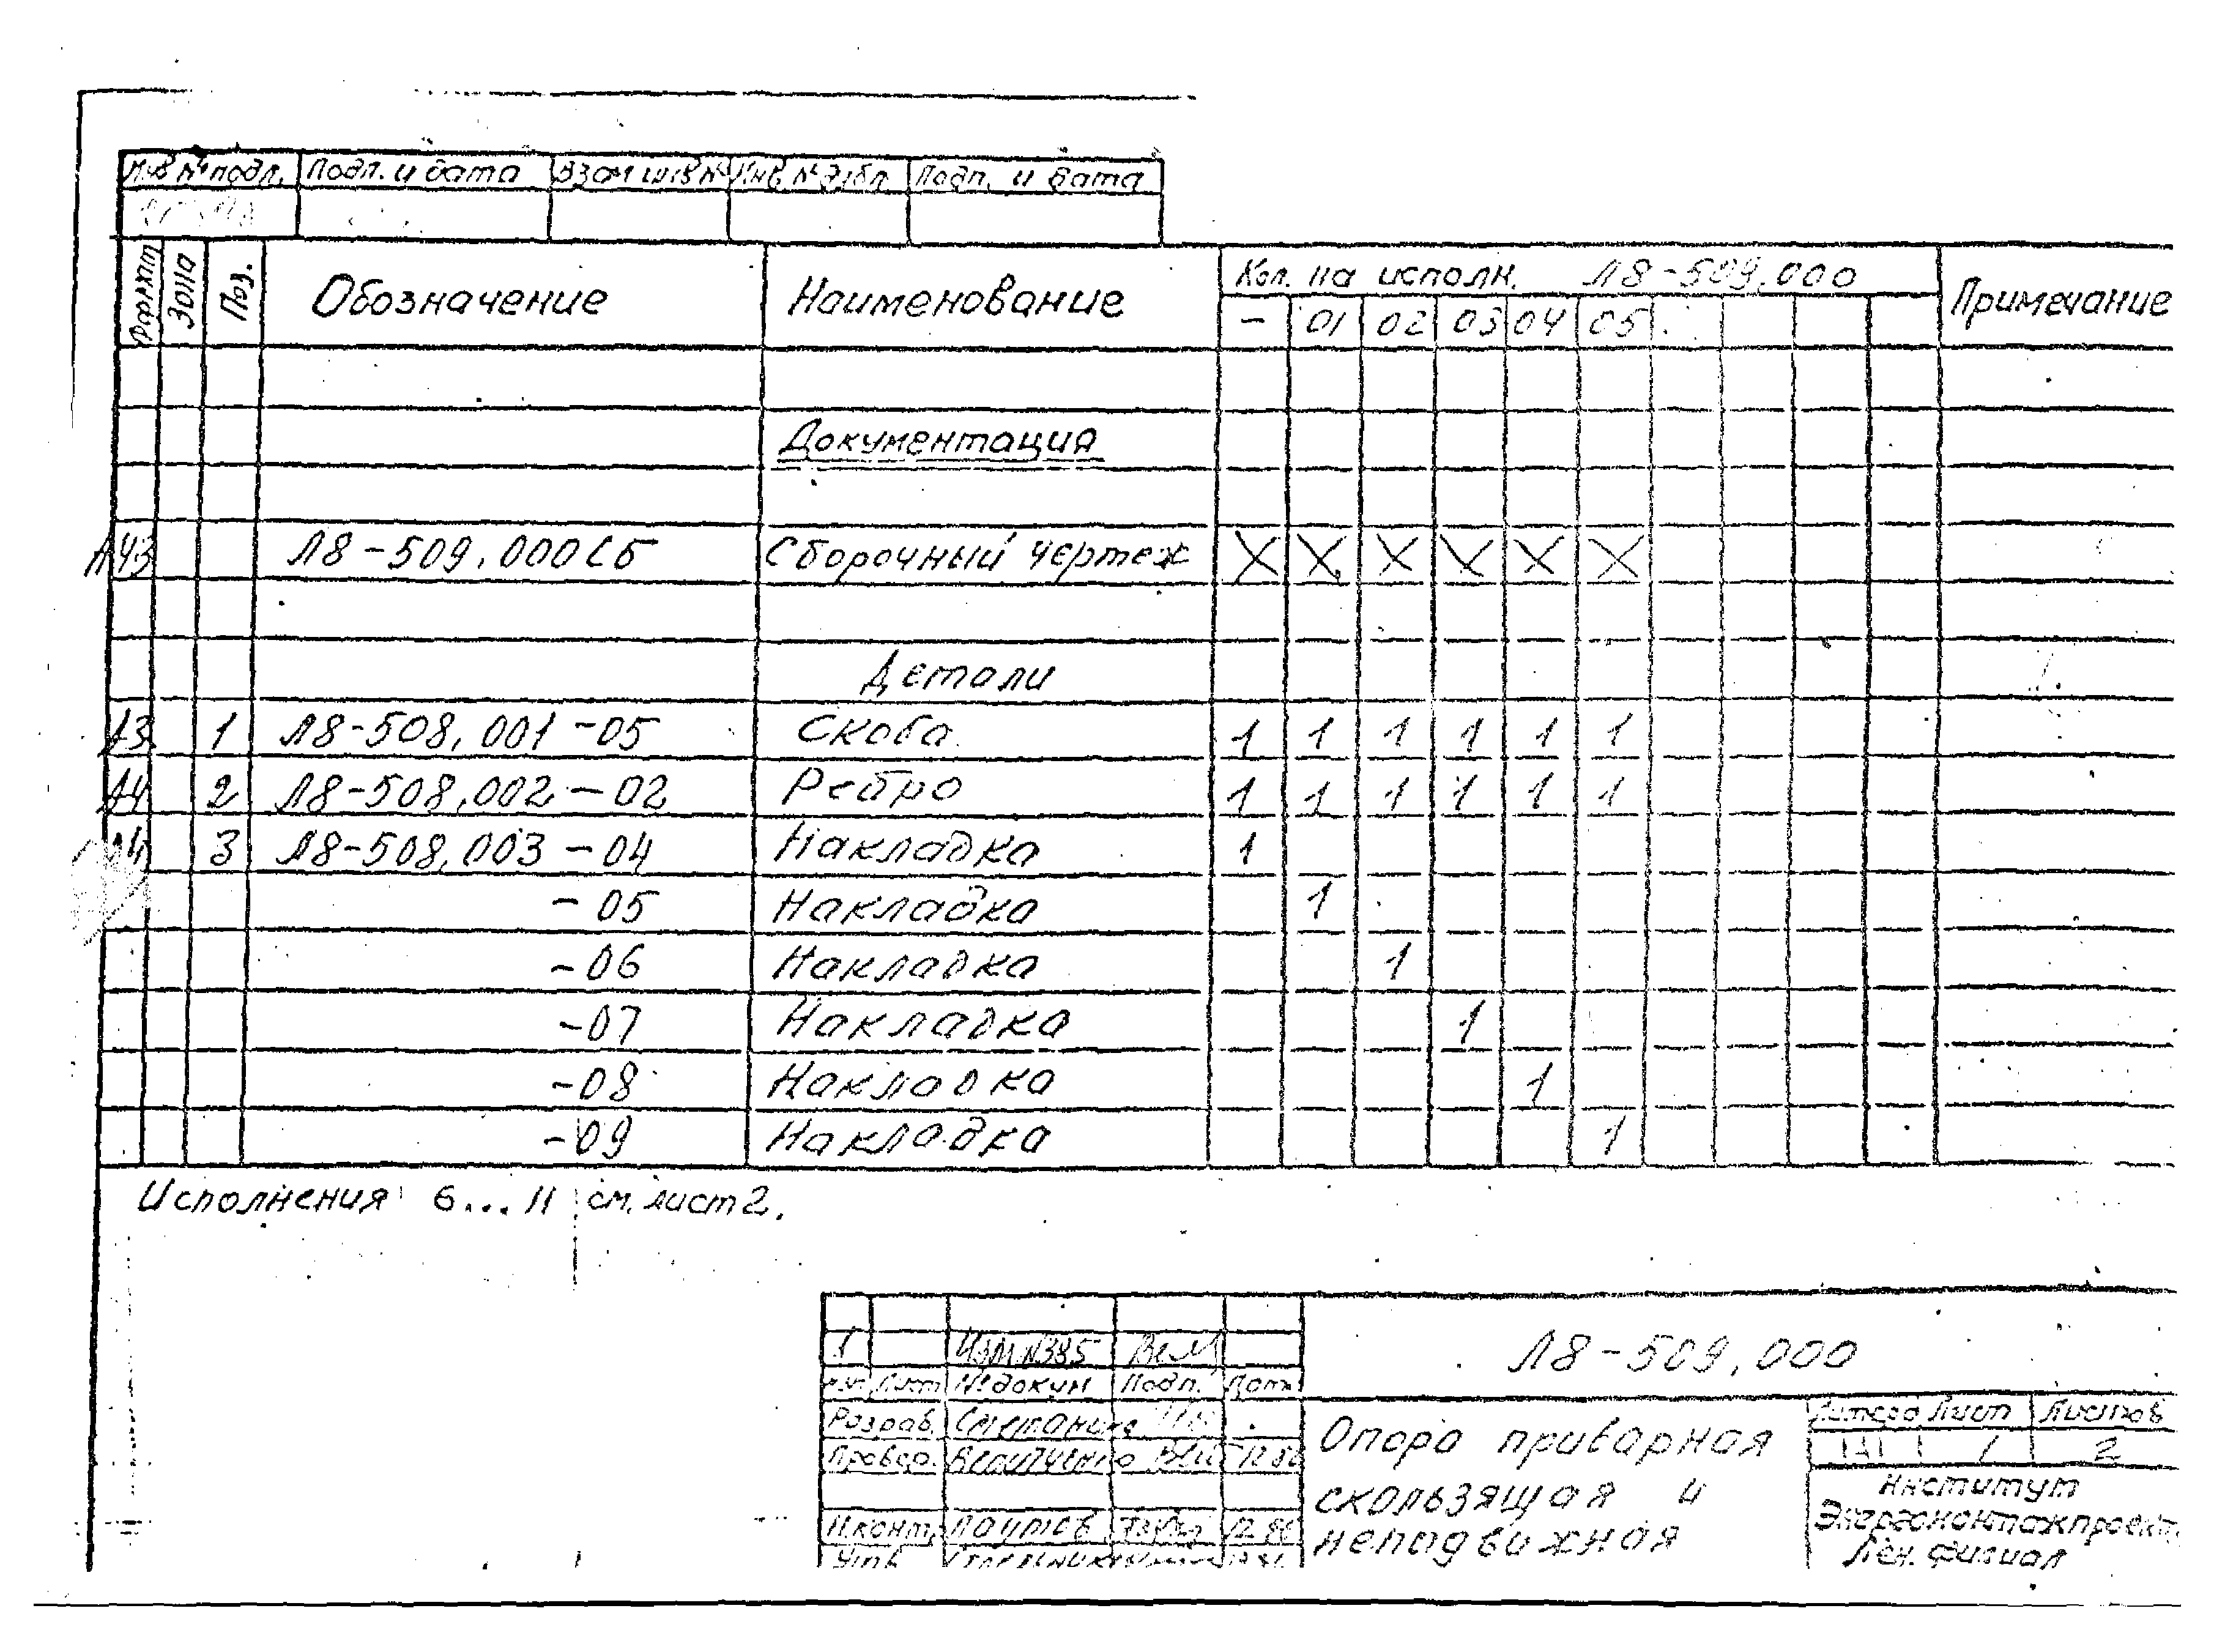 Инв № подл. Подп. и дата Взам инв № Инв. № дубл Подп. и дата
Формат Зона Поз. Обозначение Наименование Кол. на исполн. Л8-509.000 Примечание
- 01 02 03 04 05
Документация
А43 Л8-509.000СБ Сборочный чертеж X X X X X X
Детали
А3 1 Л8-508.001-05 Скоба 1 1 1 1 1 1
А4 2 Л8-508.002-02 Ребро 1 1 1 1 1 1
А4 3 Л8-508.003-04 Накладка 1
-05 Накладка 1
-06 Накладка 1
-07 Накладка 1
-08 Накладка 1
-09 Накладка 1
Исполнения 6...11 см. лист 2.
1 Изм №385
Лист № докум Подп. Дата
Л8-509.000
Разраб. Сметанина
Провер.
Н.контр.
Утв.
Опора приварная
скользящая и
неподвижная
Литера Лист Листов
1 2
Институт
Энергомонтажпроект
Лен. филиал